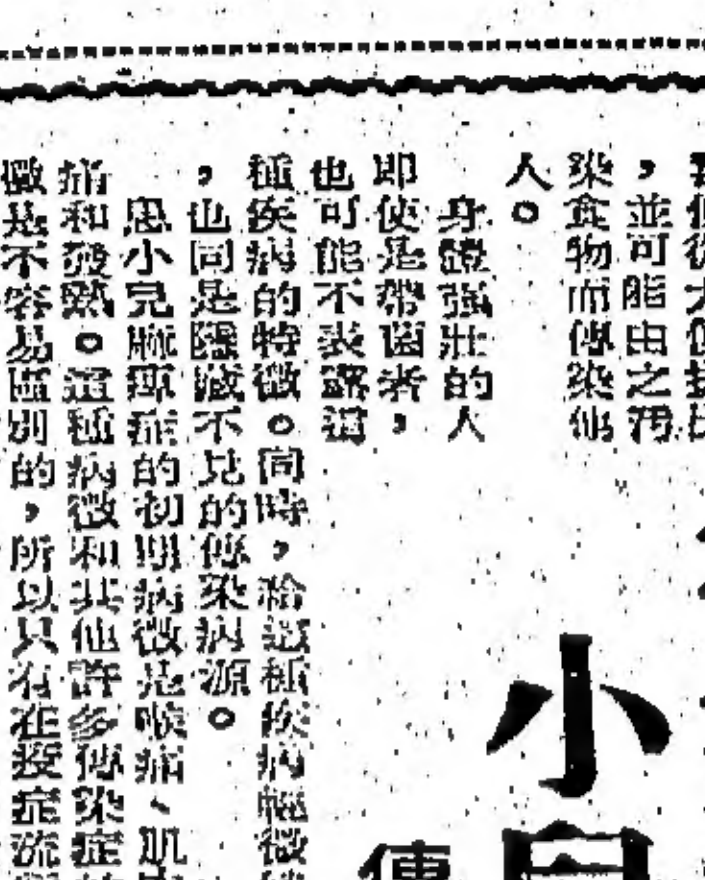 ，並可能由之汚
染食物而傳染他
人。
身體强壯的人
即使是帶菌者，
也可能不表露這
種疾病的特徵。同時，給這種疾病輕微
，也同是隱藏不見的傳染病源。
患小兒麻痺症的初期病徵是喉痛、肌
痛和發熱。這種病徵和其他許多傳染症
徵是不容易區別的，所以只有在疫症流
小兒
傳